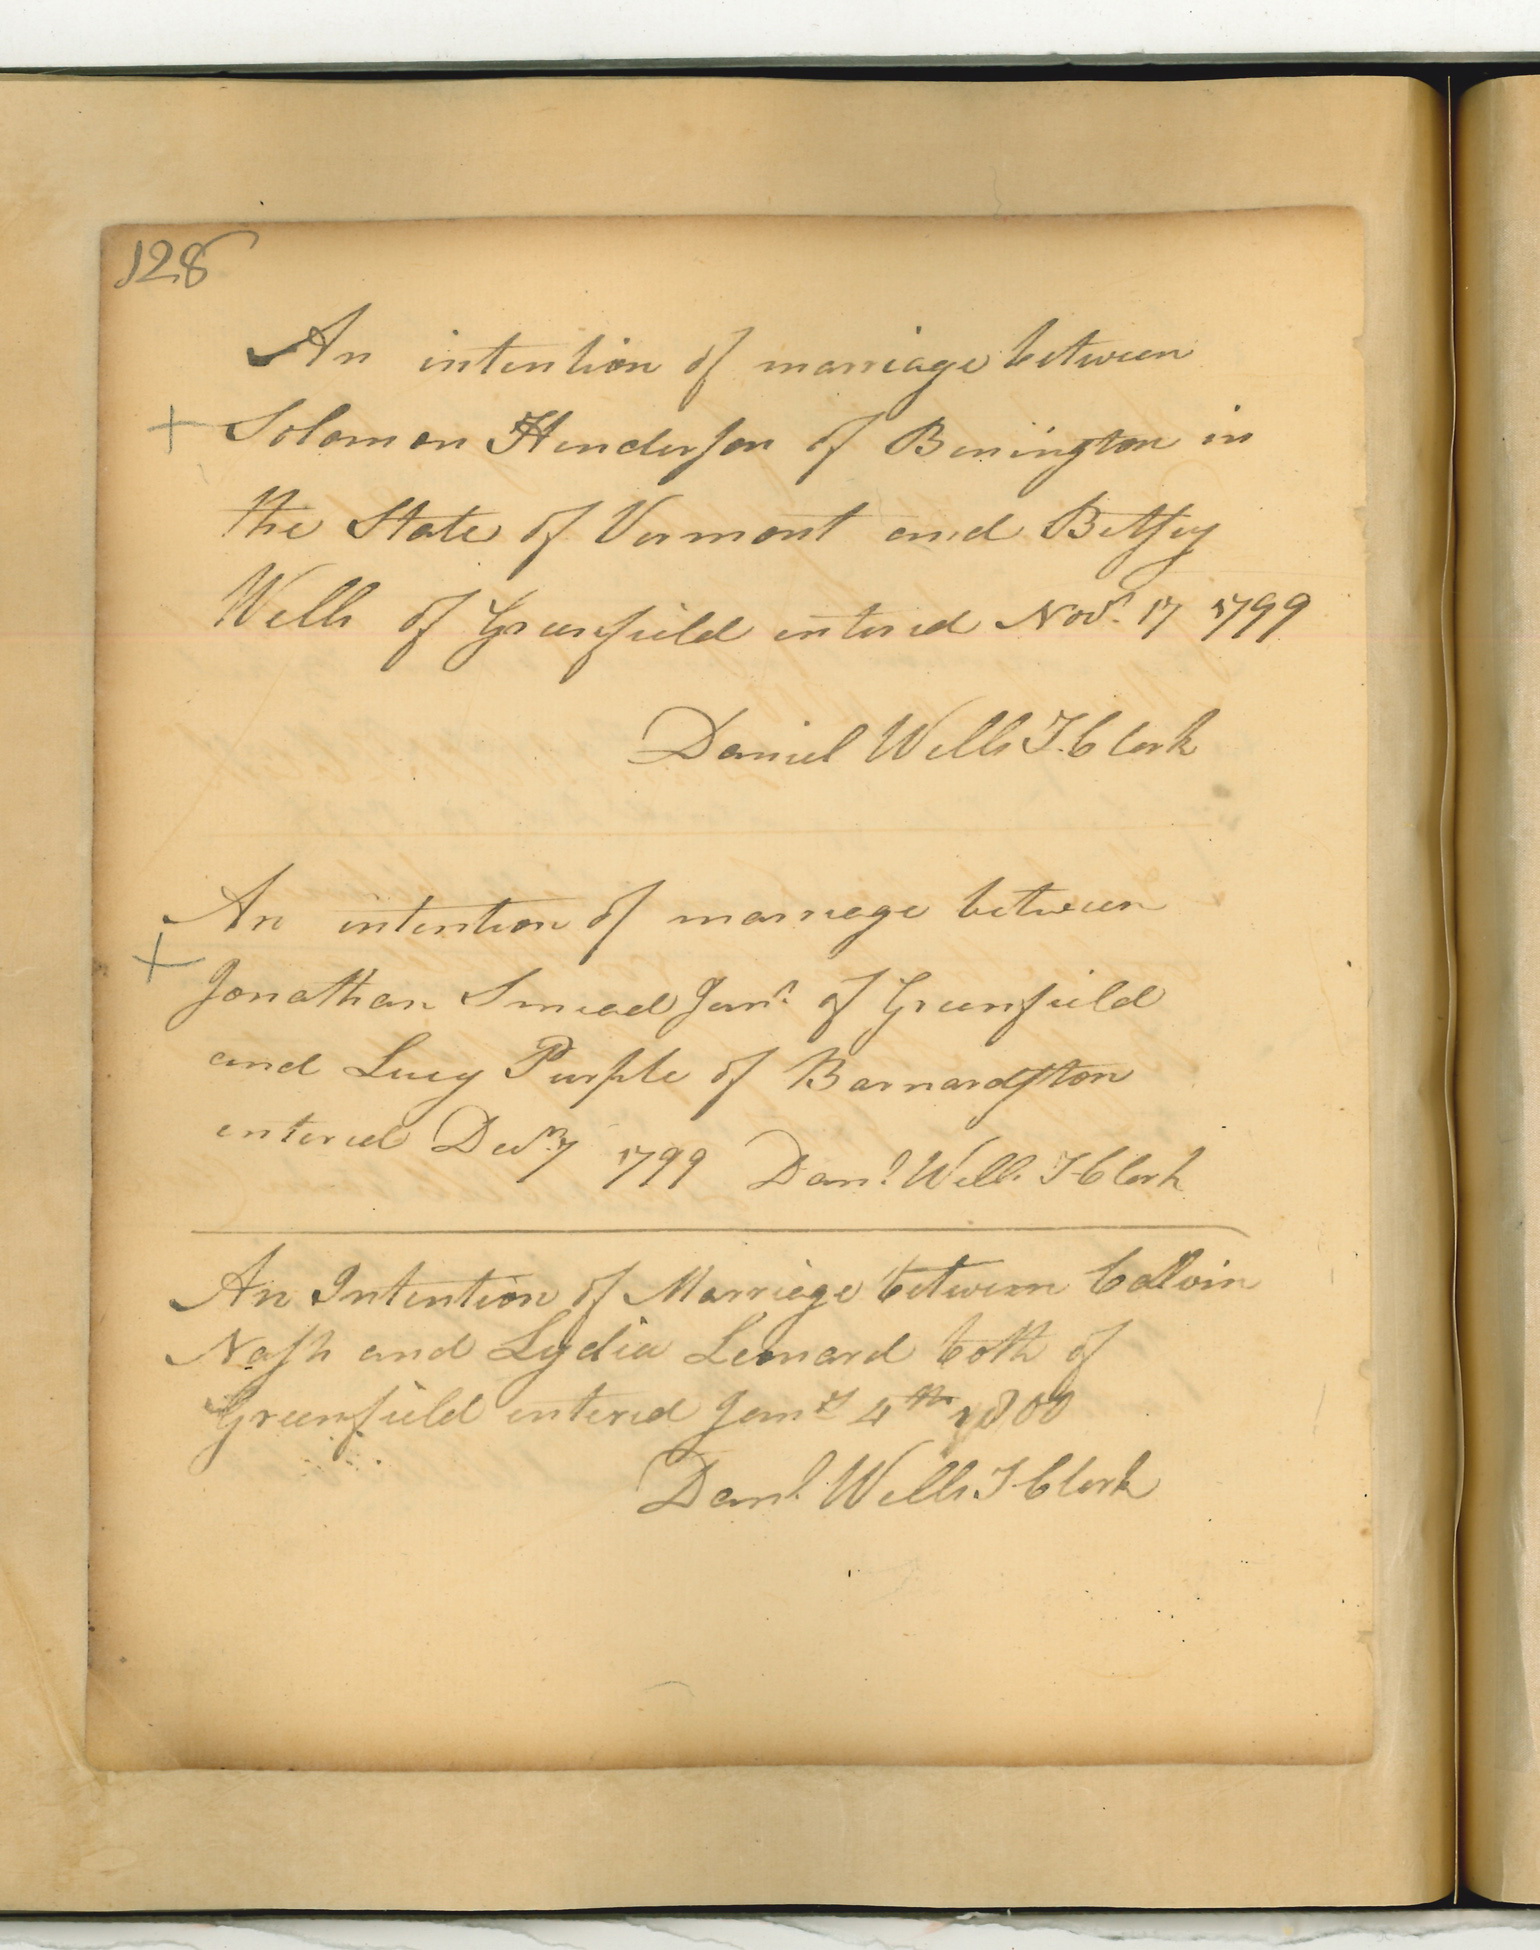 128
An intention of marriage between
+ Solomon Henderson of Benington in
the State of Vermont and Betsey
Wells of Greenfield entered Novr. 17 1799
Daniel Wells T. Clerk
An intention of marriage between
+ Jonathan Smead Junr. of Greenfield
and Lucy Purple of Barnardston
entered Decm. 7 1799 Danl. Wells T Clerk
An Intention of Marriage between Calvin
Nash and Lydia Lennard both of
Greenfield entered Jany 4th 1800
Danl. Wells T Clerk